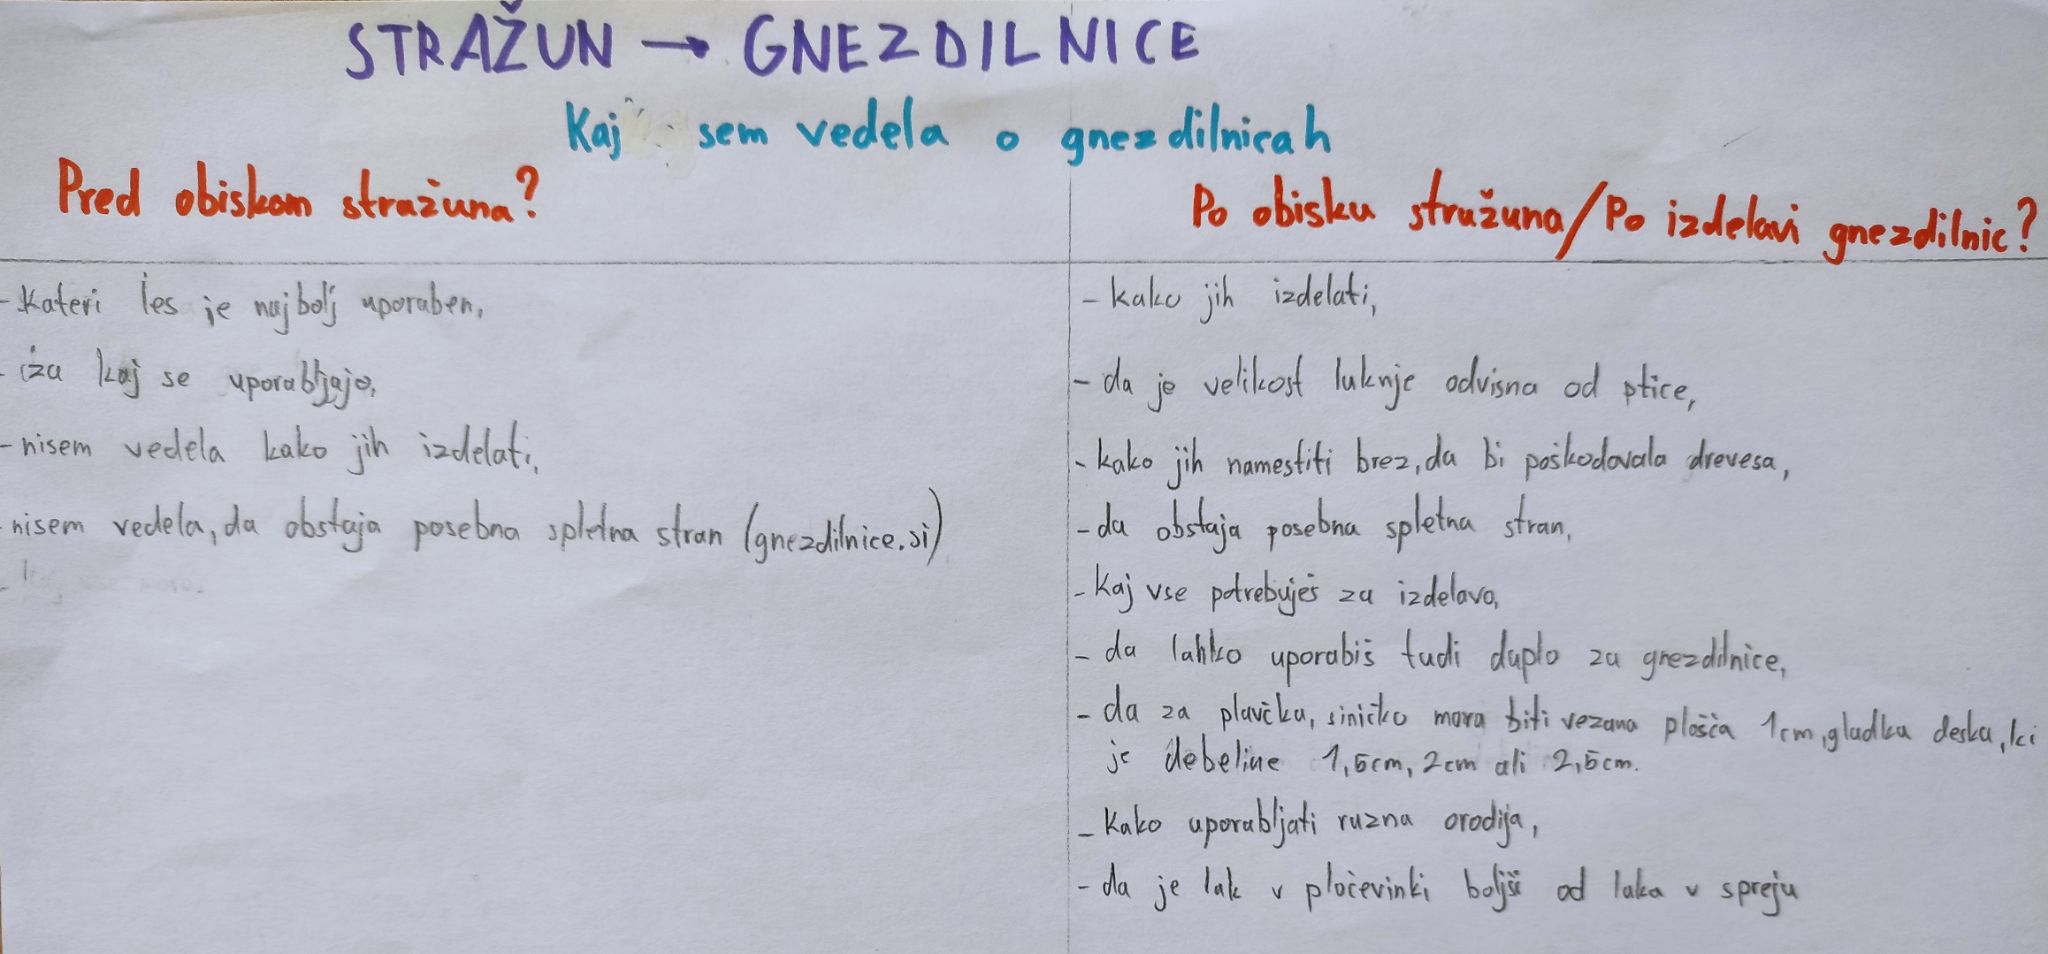 STRAŽUN → GNEZDILNICE
Kaj sem vedela o gnezdilnicah
Pred obiskom stražuna?
- Kateri les je najbolj uporaben,
- iza kaj se uporabljajo,
- nisem vedela kako jih izdelati,
- nisem vedela, da obstaja posebna spletna stran (gnezdilnice.si)
Po obisku stružuna/Po izdelavi gnezdilnic?
- kako jih izdelati,
- da je velikost luknje odvisna od ptice,
- kako jih namestiti brez, da bi poškodovala drevesa,
- da obstaja posebna spletna stran,
- Kaj vse potrebuješ za izdelavo,
- da lahko uporabiš tudi duplo za gnezdilnice,
- da za plavčka, siničko mora biti vezana plošča 1cm, gladka deska, ki
je debeline 1,5cm, 2cm ali 2,5cm.
- Kako uporabljati razna orodija,
- da je lak v pločevinki boljši od laka v spreju